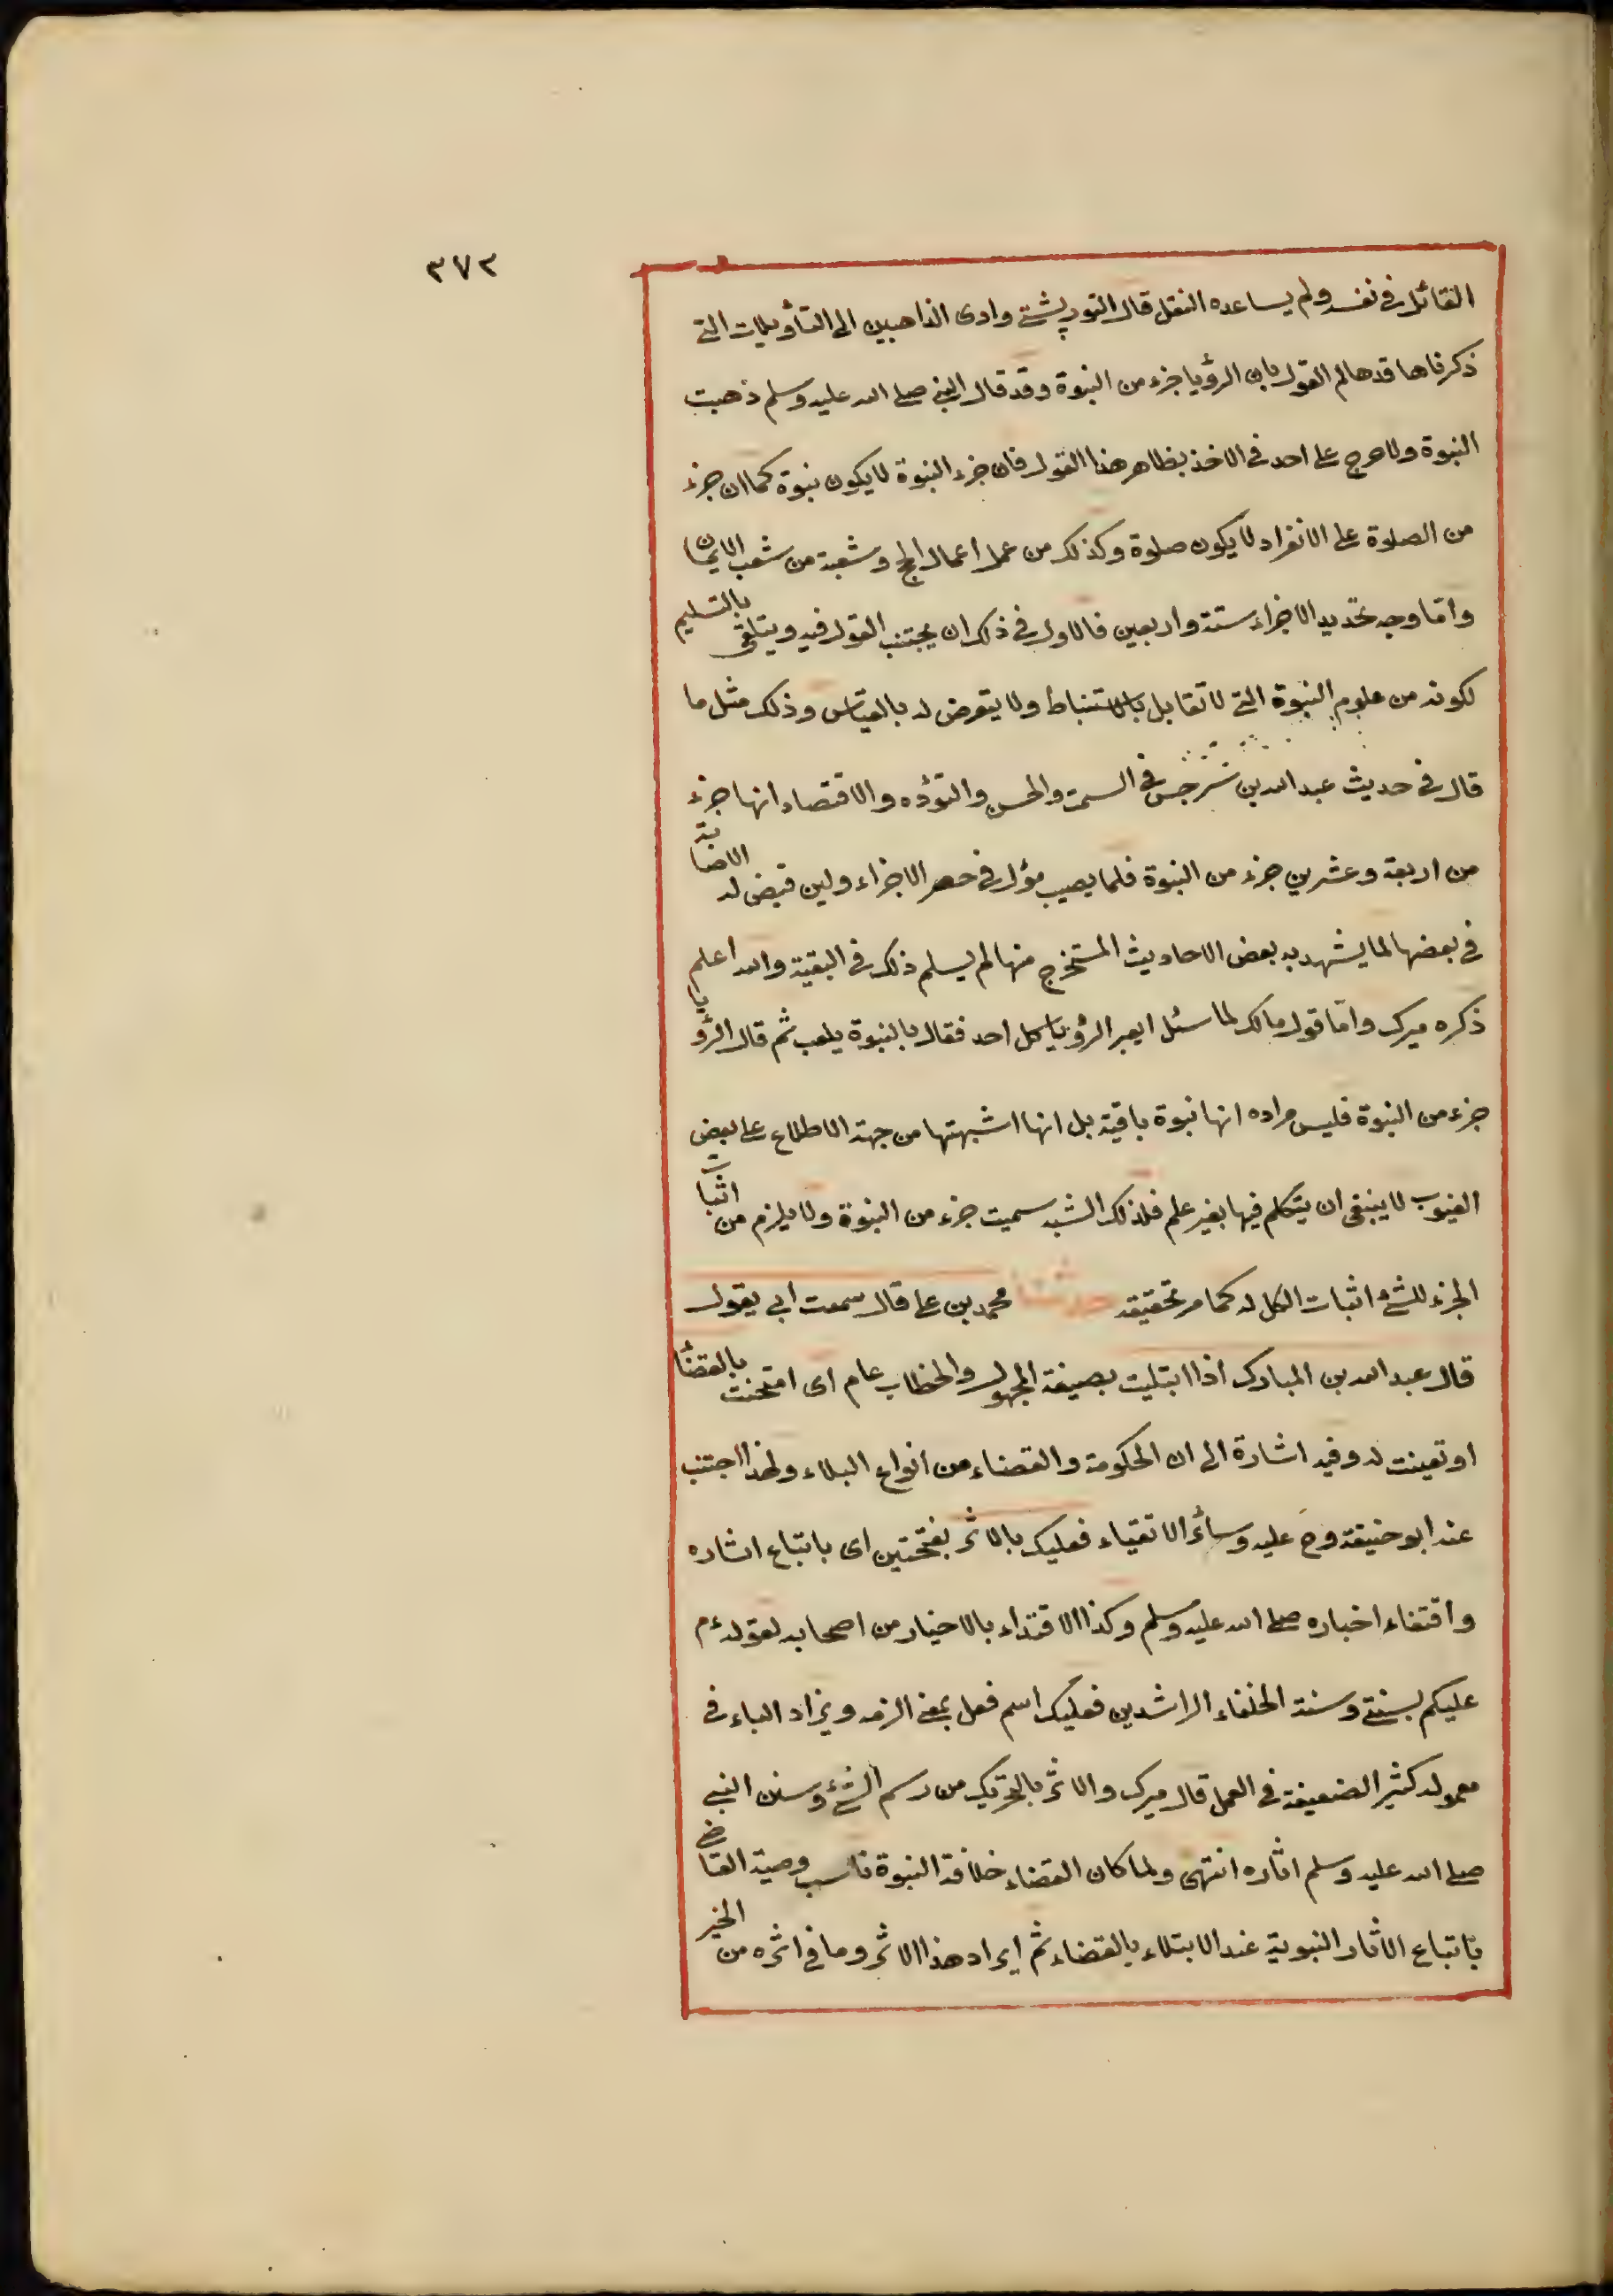 ٣٧٢
القائل في نفسه ولم يساعده النقل قال التورپشتي وارى الذاهبين الى التأويلات التي
ذكرناها قد هالهم القول بان الرؤيا جزء من النبوة وقد قال النبي صلى الله عليه وسلم ذهبت
النبوة ولا حرج على احد في الاخذ بظاهر هذا القول فان جزء النبوة لا يكون نبوة كما ان جزء
من الصلوة على الانفراد لا يكون صلوة وكذلك من عمل اعمال الحج وشعبة من شعب الايمان
واما وجه تحديد الاجزاء ستة واربعين فالاولى في ذلك ان يجتنب القول فيه ويتلقى بالتسليم
لكونه من علوم النبوة التي لا تقابل بالاستنباط ولا يتعرض له بالقياس وذلك مثل ما
قال في حديث عبد الله بن سرجس في السمت والحسن والتؤده والاقتصاد انها جزء
من اربعة وعشرين جزء من النبوة فلما يصيب مؤل في حصر الاجزاء ولين قيض له الاصابة
في بعضها لما يشهد به بعض الاحاديث المستخرج منها لم يسلم ذلك في البقية والله اعلم
ذكره ميرك واما قول مالك لما سئل ايعبر الرؤيا كل احد فقال بالنبوة يلعب ثم قال الرؤيا
جزء من النبوة فليس مراده انها نبوة باقية بل انها اشبهتها من جهة الاطلاع على بعض
الغيوب لا ينبغى ان يتكلم فيها بغير علم فلذلك الشبه سميت جزء من النبوة ولا يلزم من اثبات
الجزء للشئ اثبات الكل له كما مر تحقيقه حدثنا محمد بن على قال سمعت ابي يقول
قال عبد الله بن المبارك اذا ابتليت بصيغة المجهول والخطاب عام اى امتحنت بالقضاء
او تعينت له وفيه اشارة الى ان الحكومة والقضاء من انواع البلاء ولهذا اجتنب
عنه ابو حنيفة رح عليه وسائر الاتقياء فعليك بالاثر بفتحتين اى باتباع اثاره
واقتفاء اخباره صلى الله عليه وسلم وكذا الاقتداء بالاخيار من اصحابه لقوله ءم
عليكم بسنتي وسنة الخلفاء الراشدين فعليك اسم فعل بمعنى الزمه ويزاد الباء في
معموله كثير الضعيفة في العمل قال ميرك والاثر بالتحريك من رسم الشئ وسنن النبي
صلى الله عليه وسلم اثاره انتهى ولما كان القضاء خلافة النبوة ناسب وصية القاضي
باتباع الاثار النبوية عند الابتلاء بالقضاء ثم ايراد هذا الاثر وما في اثره من الخبر